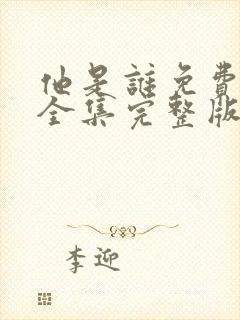 他是誰免費
全集完整版
李迎